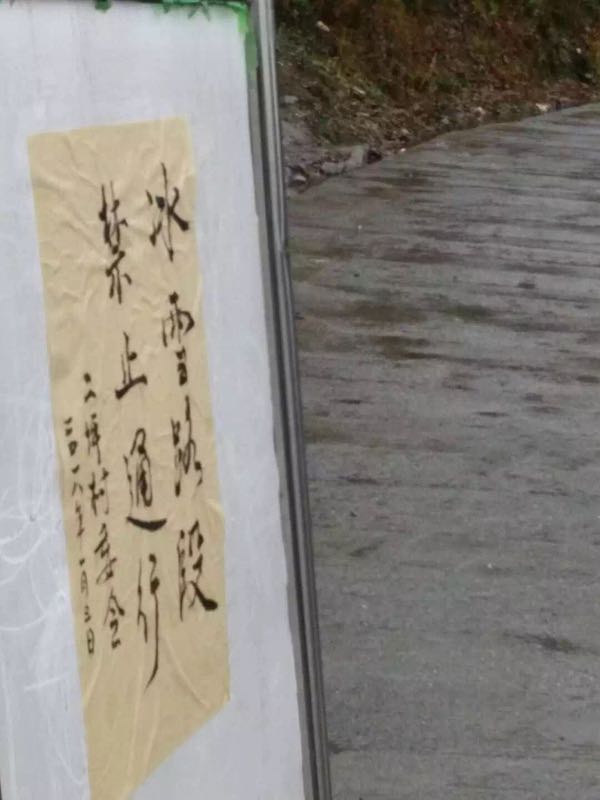 冰雪路段
禁止通行
二坪村委会
二〇一八年一月三日